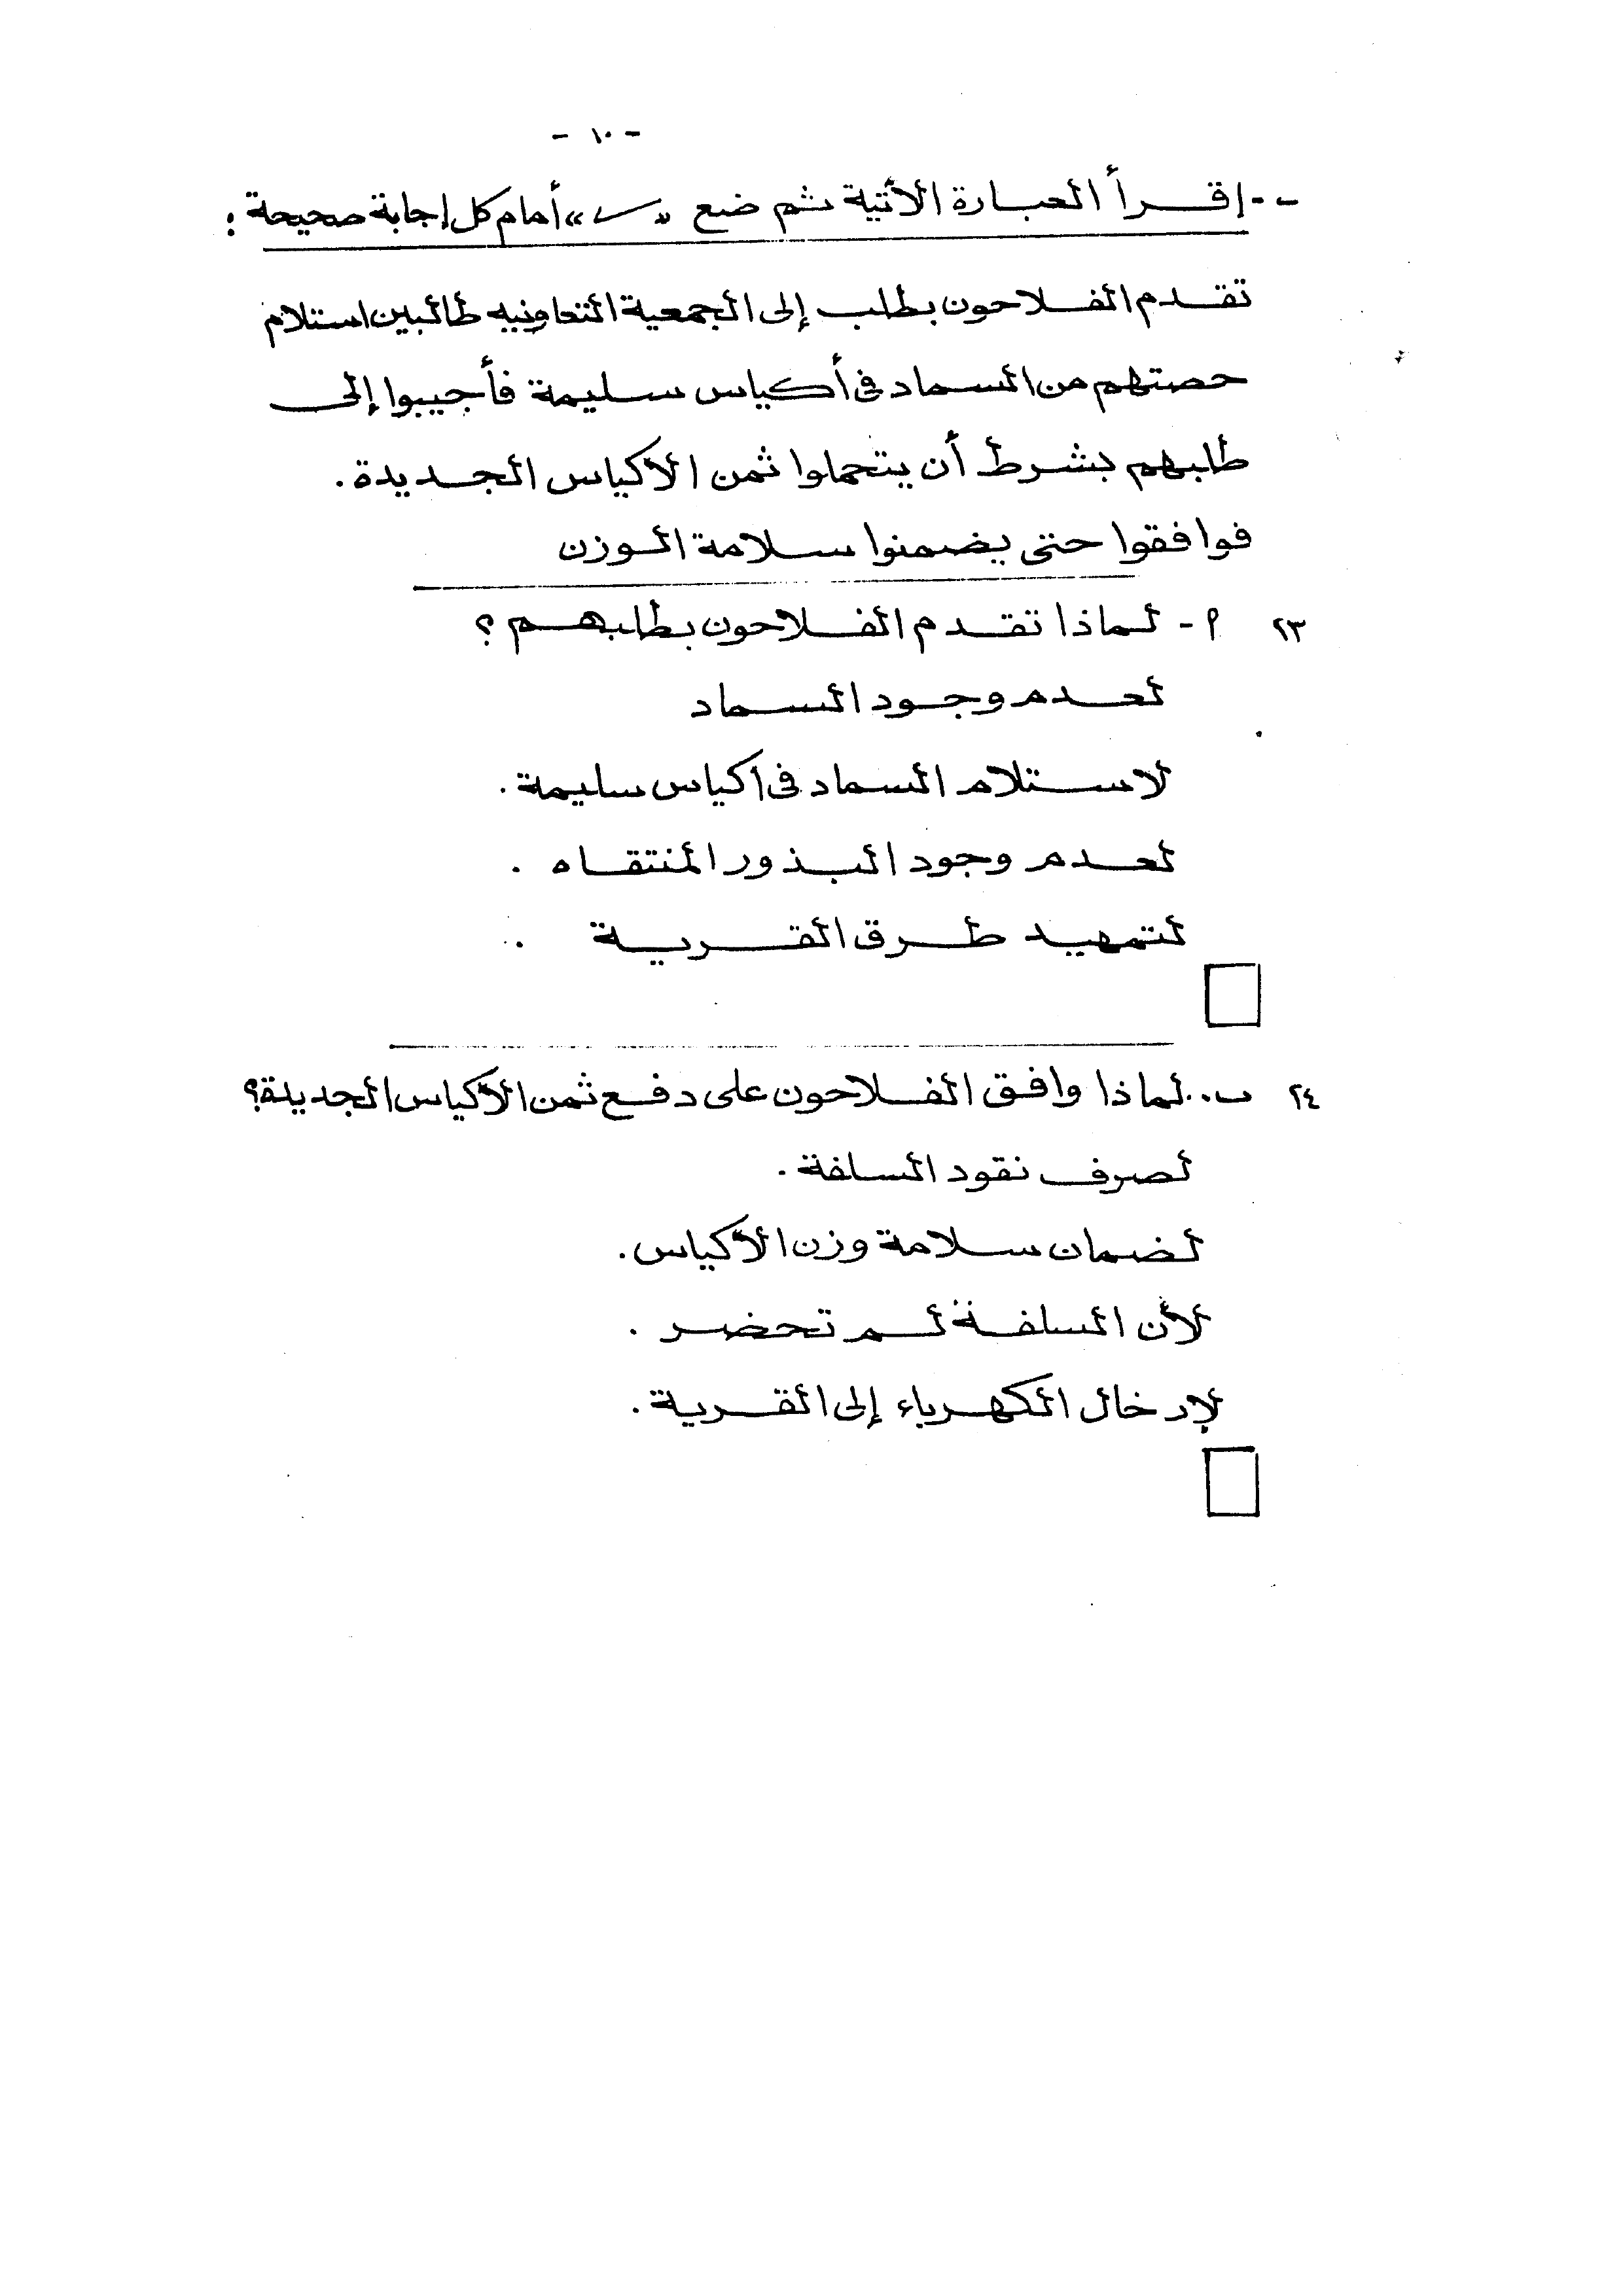 - ١٠ -
ب - إقرأ العبارة الأتية ثم ضع « ✓ » أمام كل إجابة صحيحة :
تقدم الفلاحون بطلب إلى الجمعية التعاونيه طالبين استلام
حصتهم من السماد فى أكياس سليمة فأجيبوا إلى
طلبهم بشرط أن يتحملوا ثمن الاكياس الجديدة .
فوافقوا حتى يضمنوا سلامة الوزن
٢٣ أ - لماذا تقدم الفلاحون بطلبهم ؟
لعدم وجود السماد
لاستلام السماد فى اكياس سليمة .
لعدم وجود البذور المنتقاه .
لتمهيد طرق القرية .
٢٤ ب .. لماذا وافق الفلاحون على دفع ثمن الأكياس الجديدة ؟
لصرف نقود السلفة .
لضمان سلامة وزن الأكياس .
لأن السلفة لم تحضر .
لإدخال الكهرباء إلى القرية .